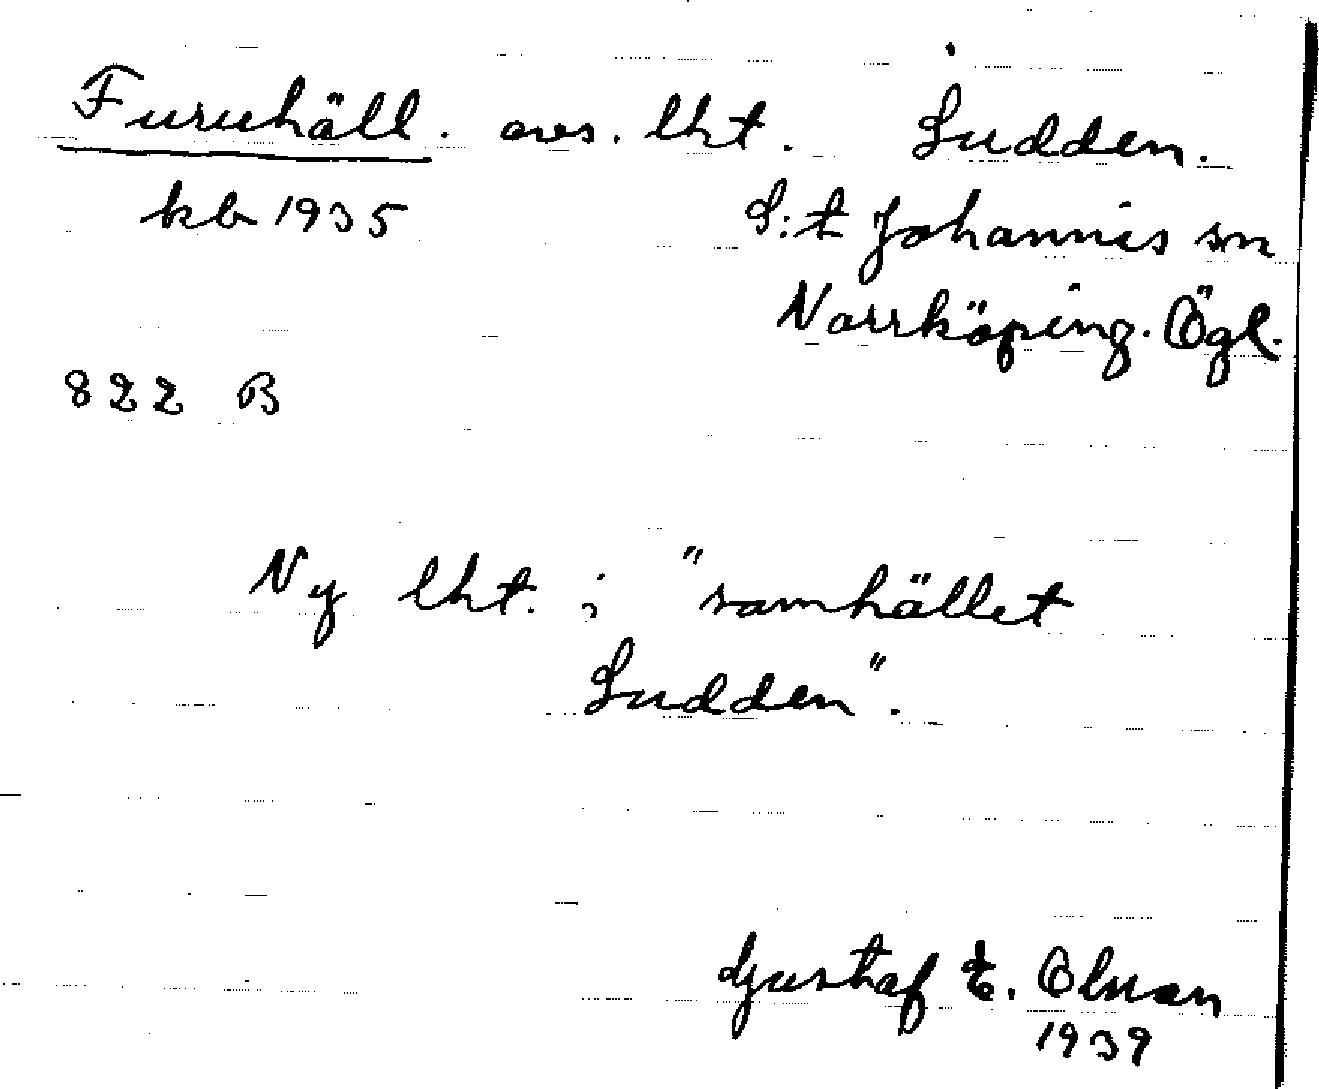 Furuhäll. avs. lht. Sudden.
kb 1935 S:t Johannis sn
Norrköping. Ögl.
822 B
Ny lht. i "samhället
Sudden".
Gustaf E. Olman
1939